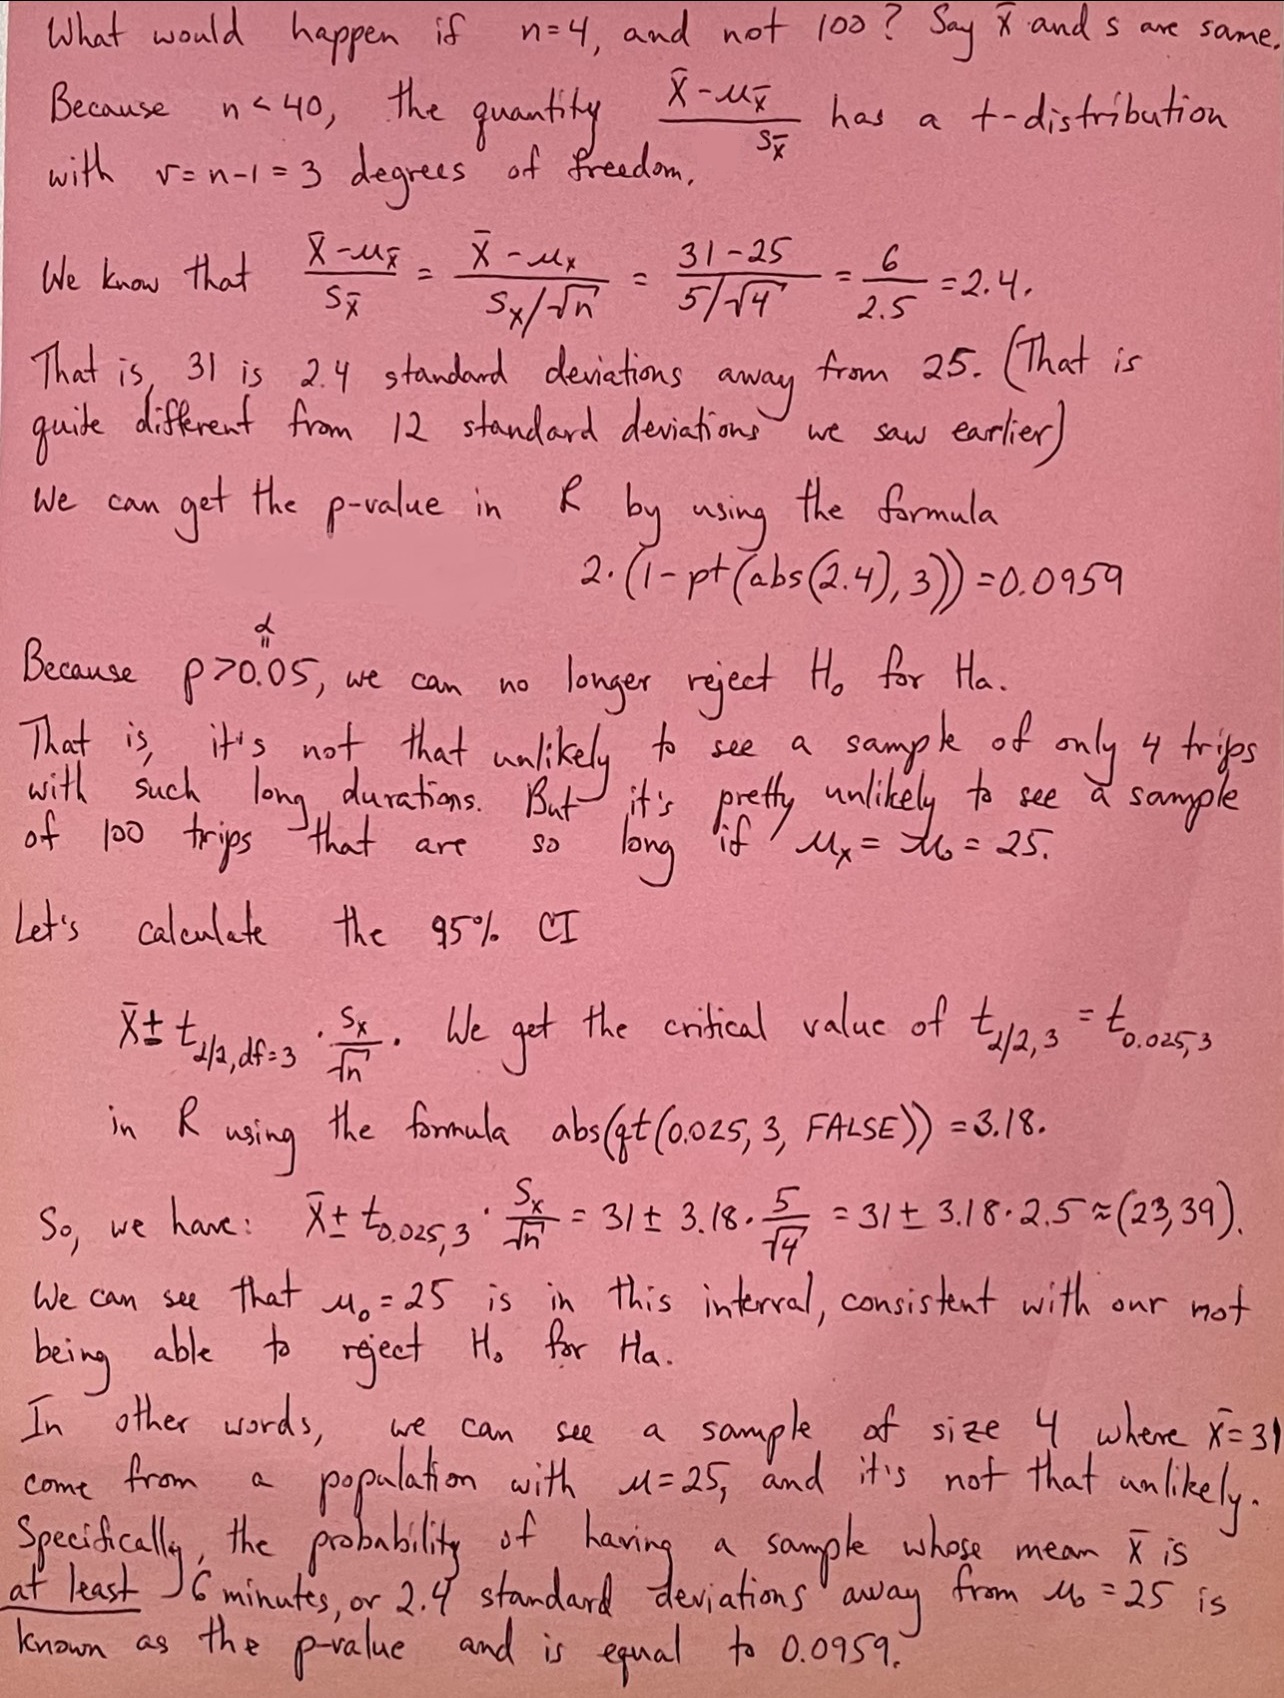 What would happen if n=4, and not 100? Say x̄ and s are same.
Because n<40, the quantity (x̄-μx̄)/sx̄ has a t-distribution
with v=n-1=3 degrees of freedom.
We know that (x̄-μx̄)/sx̄ = (x̄-μx)/(sx/√n) = (31-25)/(5/√4) = 6/2.5 = 2.4.
That is, 31 is 2.4 standard deviations away from 25. (That is
quite different from 12 standard deviations we saw earlier)
We can get the p-value in R by using the formula
2·(1-pt(abs(2.4),3))=0.0959
α
=
Because p>0.05, we can no longer reject H₀ for Ha.
That is, it's not that unlikely to see a sample of only 4 trips
with such long durations. But it's pretty unlikely to see a sample
of 100 trips that are so long if μx = μ₀ = 25.
Let's calculate the 95% CI
x̄ ± t α/2, df=3 · sx/√n. We get the critical value of t α/2, 3 = t 0.025, 3
in R using the formula abs(qt(0.025, 3, FALSE)) = 3.18.
So, we have: x̄ ± t 0.025, 3 · sx/√n = 31 ± 3.18 · 5/√4 = 31 ± 3.18 · 2.5 ≈ (23,39).
We can see that μ₀ = 25 is in this interval, consistent with our not
being able to reject H₀ for Ha.
In other words, we can see a sample of size 4 where x̄=31
come from a population with μ=25, and it's not that unlikely.
Specifically, the probability of having a sample whose mean x̄ is
at least 6 minutes, or 2.4 standard deviations away from μ₀ = 25 is
known as the p-value and is equal to 0.0959.